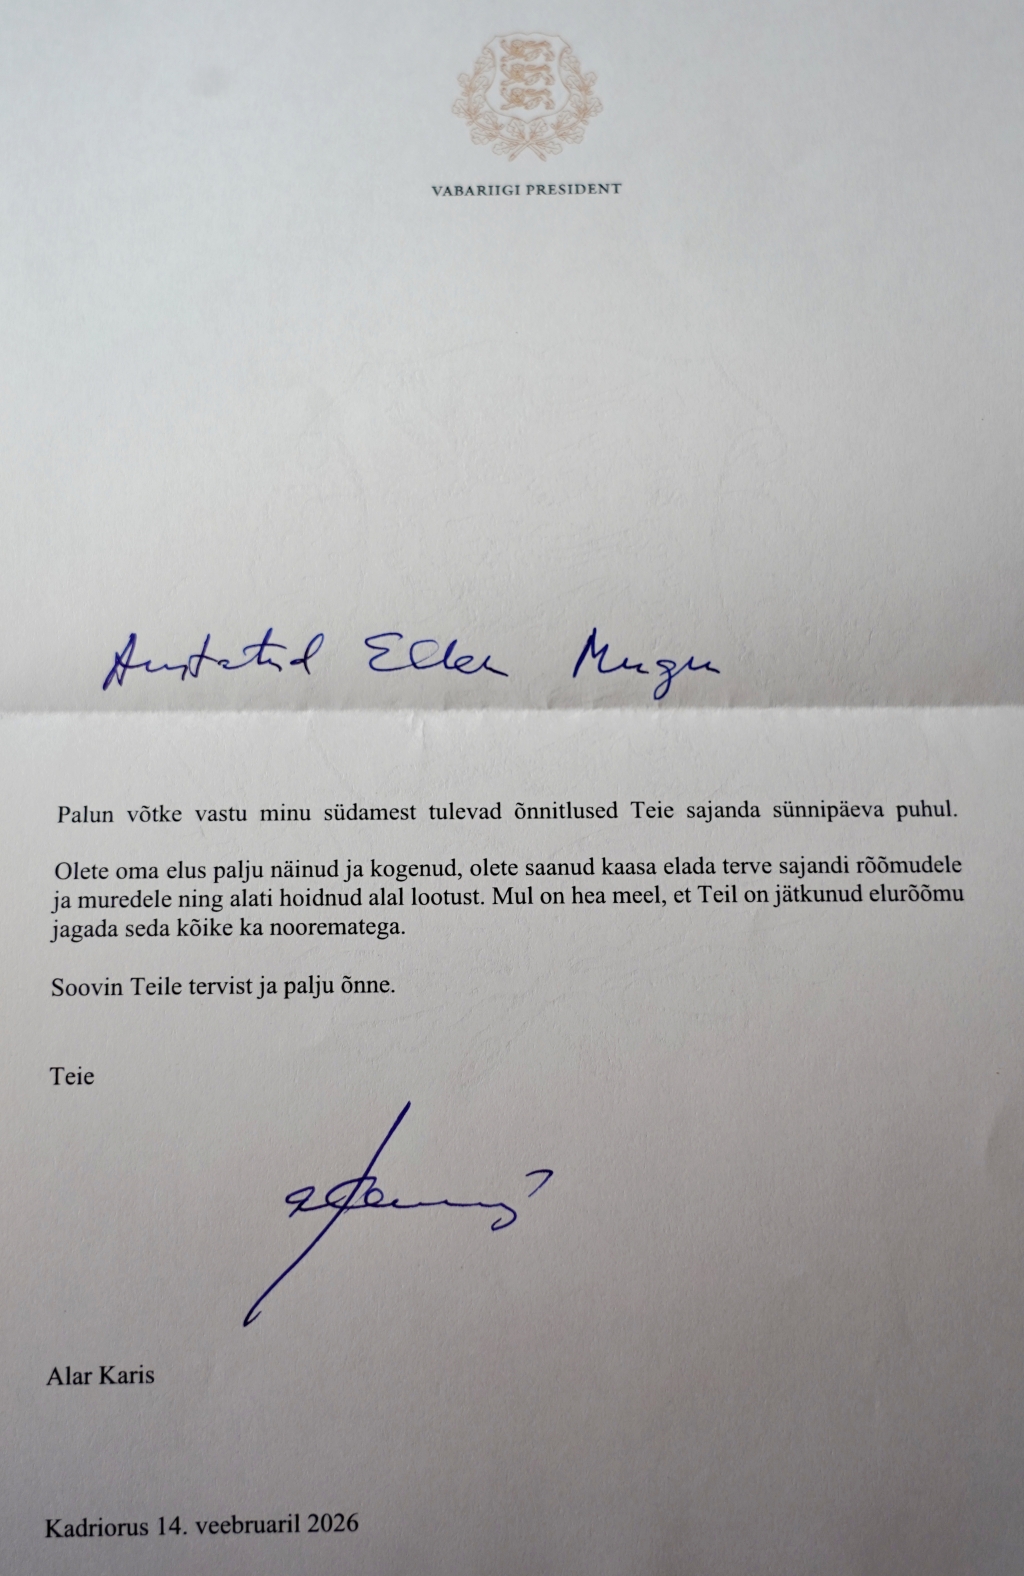 VABARIIGI PRESIDENT
Austatud Ellen Mugu
Palun võtke vastu minu südamest tulevad õnnitlused Teie sajanda sünnipäeva puhul.
Olete oma elus palju näinud ja kogenud, olete saanud kaasa elada terve sajandi rõõmudele
ja muredele ning alati hoidnud alal lootust. Mul on hea meel, et Teil on jätkunud elurõõmu
jagada seda kõike ka noorematega.
Soovin Teile tervist ja palju õnne.
Teie
Alar Karis
Kadriorus 14. veebruaril 2026